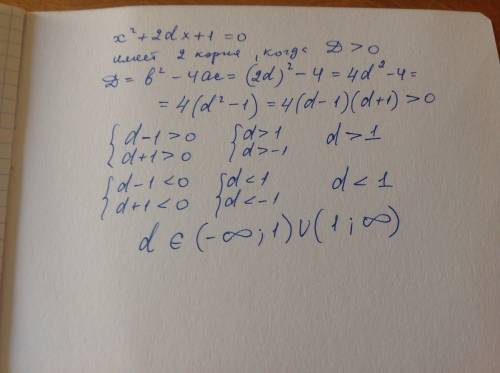 x² + 2dx + 1 = 0
имеет 2 корня, когда D > 0
D = b² - 4ac = (2d)² - 4 = 4d² - 4 =
= 4(d² - 1) = 4(d - 1)(d + 1) > 0
{ d - 1 > 0 { d > 1 d > 1
{ d + 1 > 0 { d > -1
{ d - 1 < 0 { d < 1 d < 1
{ d + 1 < 0 { d < -1
d ∈ (-∞; 1) ∪ (1; ∞)